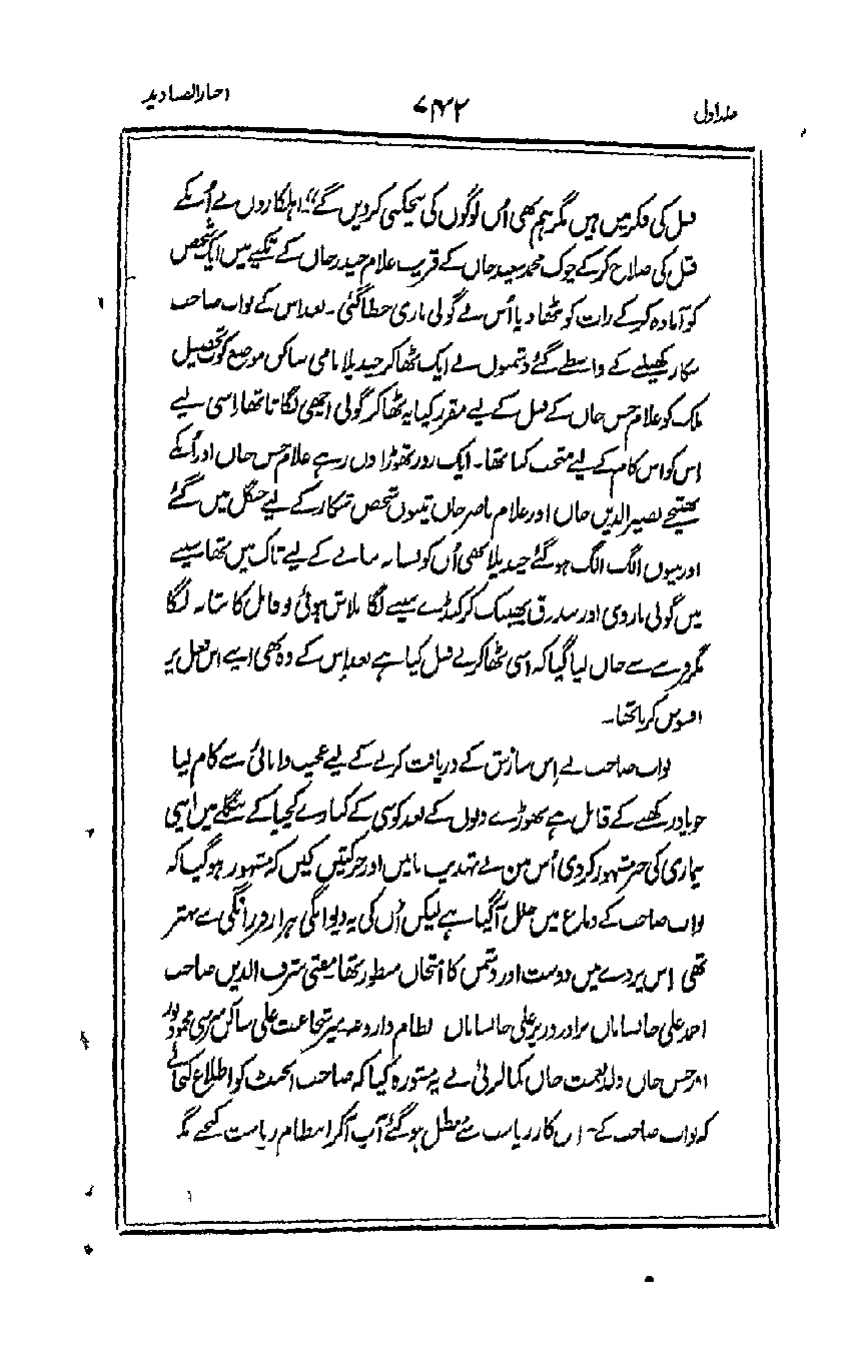 جلد اول ۷۴۲ اخبار الصنادید
قتل کی فکر میں ہیں مگر ہم بھی اُن لوگوں کی بیخکنی کر دیں گے" اہلکاروں نے اُنکے
قتل کی صلاح کر کے چوک محمد سعید خاں کے قریب غلام حیدر خاں کے تکیے میں ایک شخص
کو آمادہ کر کے رات کو بٹھا دیا اُس نے گولی ماری خطا گئی۔ بعد اس کے نواب صاحب
شکار کھیلنے کے واسطے گئے دشمنوں نے ایک ٹھاکر چندیلا نامی ساکن موضع تحصیل
ملک کو غلام حسن خاں کے قتل کے لیے مقرر کیا یہ ٹھاکر گولی اچھی لگاتا تھا اِسی لیے
اِس کو اس کام کے لیے منتخب کیا تھا۔ ایک روز تھوڑا دن رہے غلام حسن خاں اور اُنکے
بھتیجے نصیر الدین خاں اور غلام ناصر خاں تینوں شخص شکار کے لیے جنگل میں گئے
اور تینوں الگ الگ ہو گئے چندیلا بھی اُن کو نشانہ بنانے کے لیے تاک میں تھا سینے
میں گولی مار دی اور بندوق پھینک کر کنڈے بیننے لگا تلاش ہوئی تو قاتل کا پتا نہ لگا
مگر قرینے سے جان لیا گیا کہ اسی ٹھاکر نے قتل کیا ہے بعد اِس کے وہ بھی اپنے اس فعل پر
افسوس کرتا تھا۔
نواب صاحب نے اِس سازش کے دریافت کرنے کے لیے عجیب دانائی سے کام لیا
جو یاد رکھنے کے قابل ہے تھوڑے دنوں کے بعد کوسی کے کنارے کے بنگلے میں اپنی
بیماری کی خبر مشہور کر دی اُس میں نے تہذیب باتیں اور حرکتیں کیں کہ مشہور ہو گیا کہ
نواب صاحب کے دماغ میں خلل آ گیا ہے لیکن اُن کی یہ دیوانگی ہزار فرزانگی سے بہتر
تھی اِس پردے میں دوست اور دشمن کا امتحان منظور تھا مفتی شرف الدین صاحب
احمد علی خانساماں برادر وزیر علی خانساماں نظام داروغہ میر شجاعت علی ساکن سرسی
حسن خاں ولد نعمت خاں کمالزئی نے یہ مشورہ کیا کہ صاحب ایجنٹ کو اطلاع
کہ نواب صاحب کار ریاست سے معطل ہو گئے آپ آکر انتظام ریاست کیجئے مگر